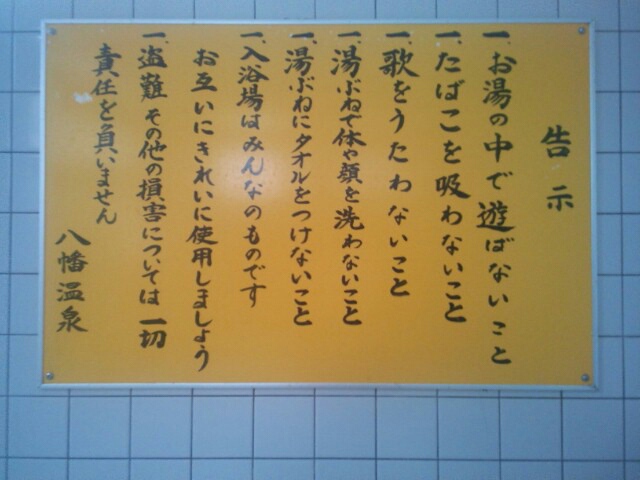 告示
一、お湯の中で遊ばないこと
一、たばこを吸わないこと
一、歌をうたわないこと
一、湯ぶねで体や頭を洗わないこと
一、湯ぶねにタオルをつけないこと
一、入浴場はみんなのものです
お互いにきれいに使用しましょう
一、盗難その他の損害については一切
責任を負いません
八幡温泉